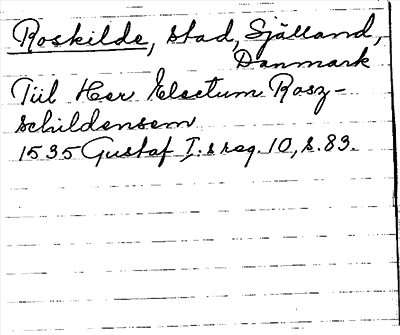 Roskilde, stad, Själland,
Danmark
Tiil Her Electum Rosz-
schildensem
1535 Gustaf I:s reg. 10, s. 83.